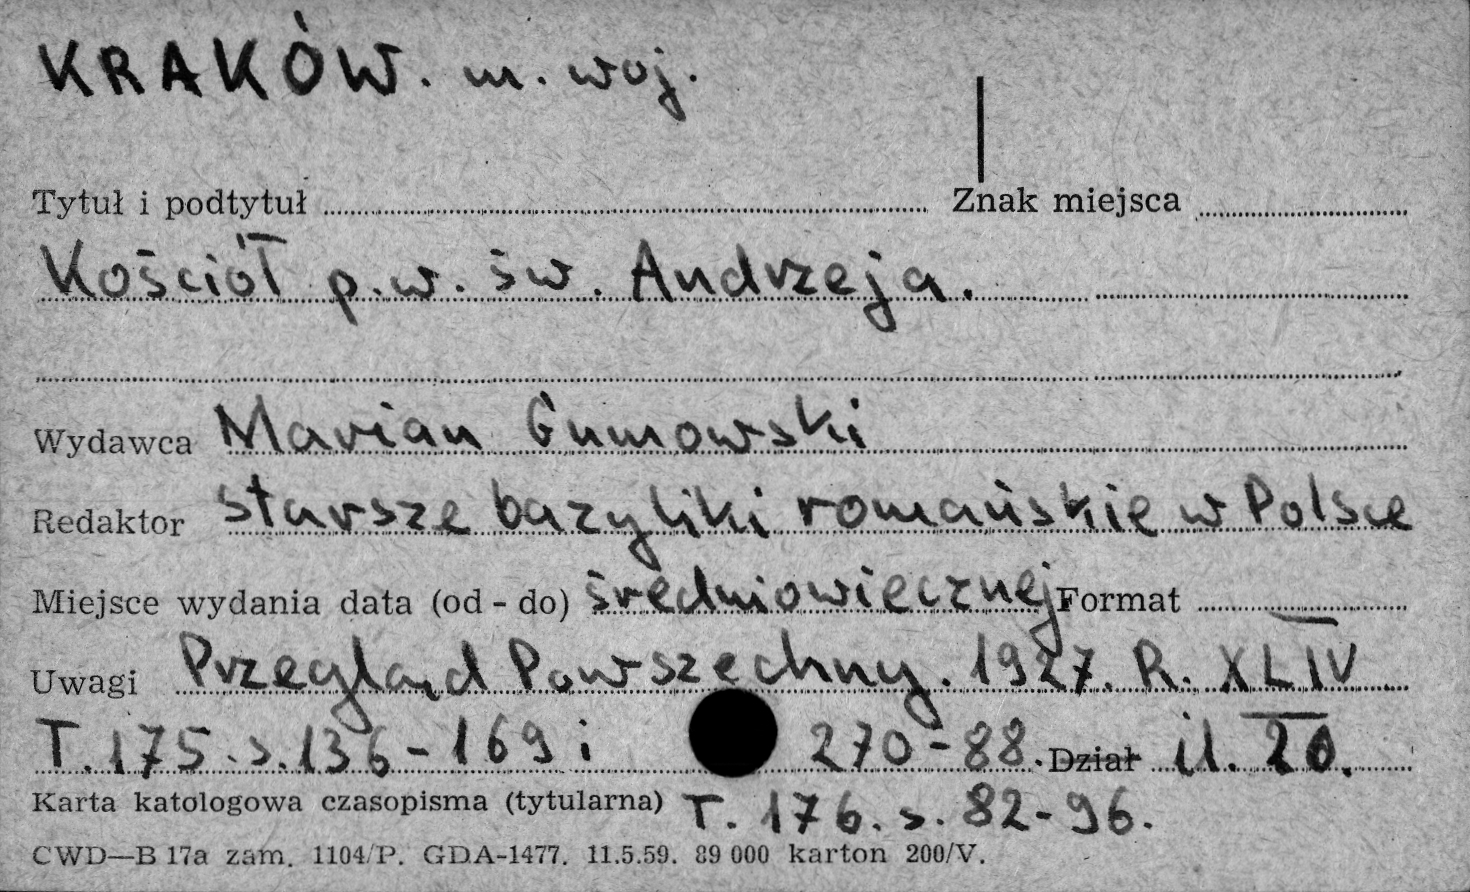 KRAKÓW. m. woj.
Tytuł i podtytuł Znak miejsca
Kościół p.w. św. Andrzeja.
Wydawca Marian Gumowski
Redaktor starsze bazyliki romańskie w Polsce
Miejsce wydania data (od - do) średniowiecznej Format
Uwagi Przegląd Powszechny. 1927. R. XLIV
T. 175. s. 136-169 i 270-88. Dział il. 20.
Karta katologowa czasopisma (tytularna) T. 176. s. 82-96.
CWD—B 17a zam. 1104/P. GDA-1477. 11.5.59. 89 000 karton 200/V.